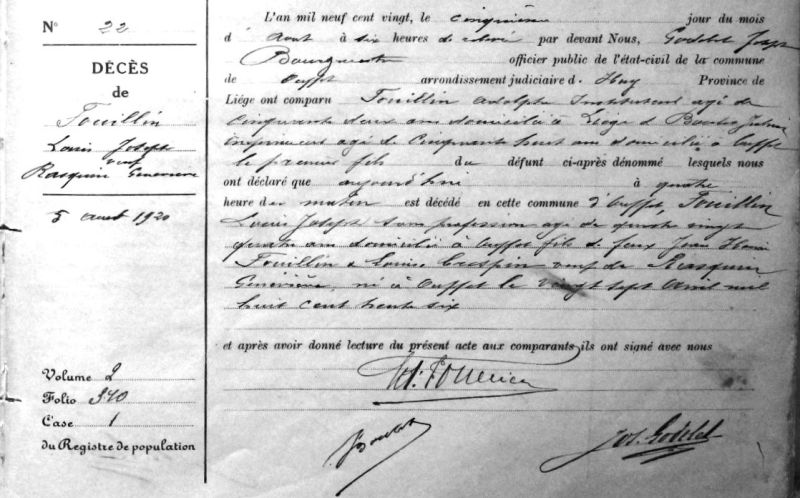 N° 22
DÉCÈS
de
Fouillin
Louis Joseph
veuf
Rasquin Geneviève
5 aout 1920
Volume 2
Folio 540
Case 1
du Registre de population
L'an mil neuf cent vingt, le cinquième jour du mois
d' Aout à six heures de relevé par devant Nous, Godelet Joseph
Bourgmestre officier public de l'état-civil de la commune
de Ouffet arrondissement judiciaire d. Huy Province de
Liége ont comparu Fouillin Adolphe Instituteur agé de
cinquante deux ans domicilié à Liège &
agé de cinquante huit ans domicilié à Ouffet
le premier fils du défunt ci-après dénommé lesquels nous
ont déclaré que aujourd'hui à quatre
heure du matin est décédé en cette commune d'Ouffet, Fouillin
Louis Joseph sans profession agé de quatre vingt
quatre ans domicilié à Ouffet fils de feux Jean Henri
Fouillin & Louise Crespin veuf de Rasquin
Geneviève, né à Ouffet le vingt sept Avril mil
huit cent trente six
et après avoir donné lecture du présent acte aux comparants ils ont signé avec nous
Ad. Fouillin
Jos. Godelet